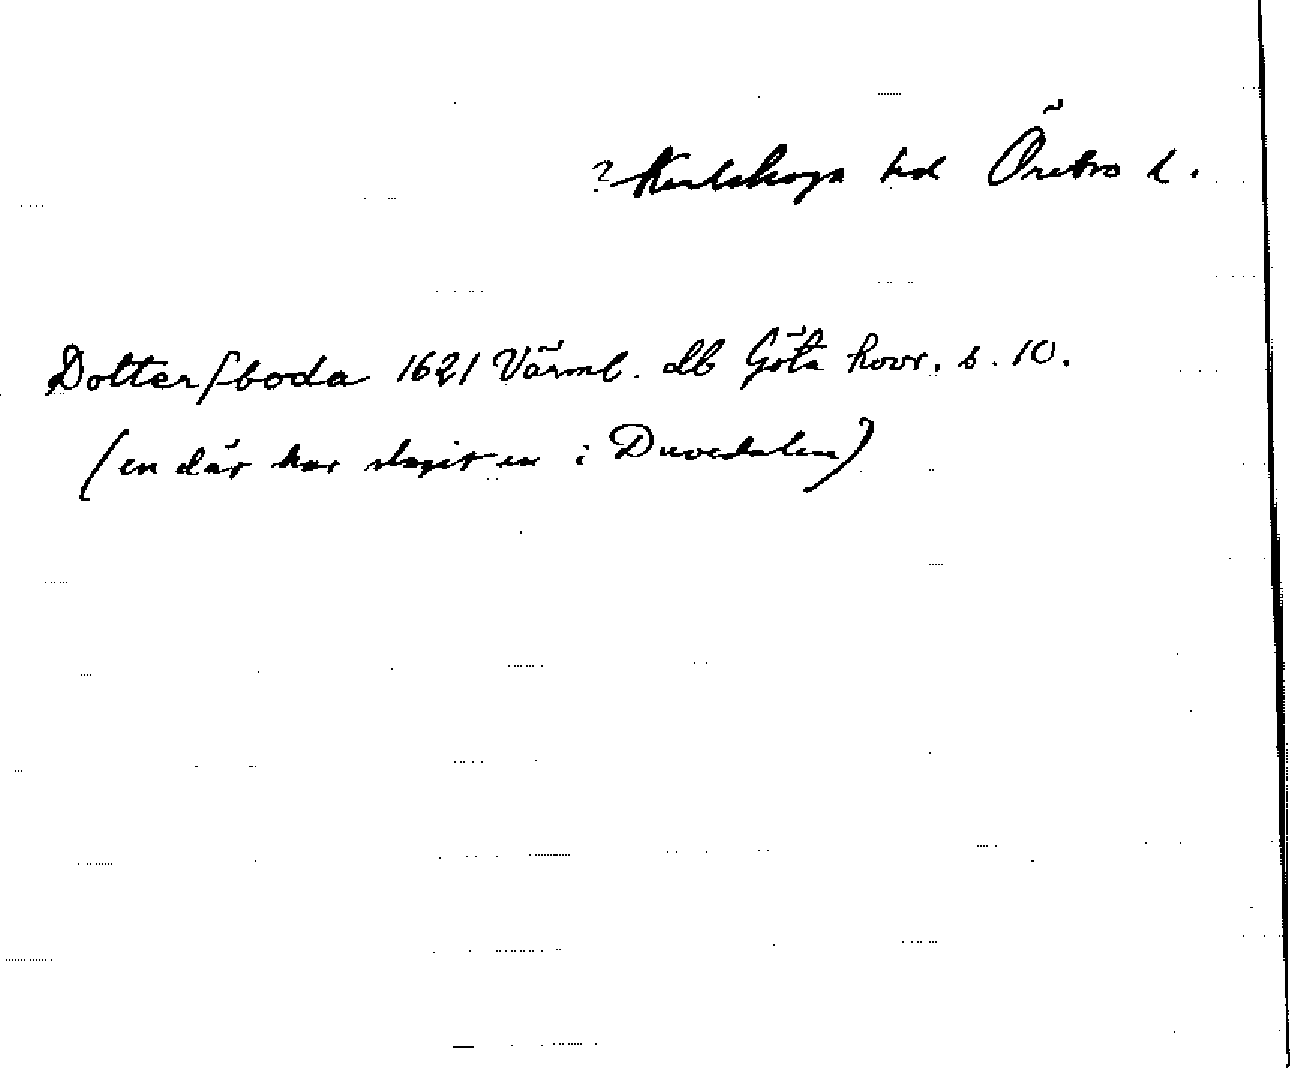 ? Karlskoga hd Örebro l.
Dotterſboda 1621 Värml. db Göta hovr. s. 10.
(en där har slagit en i Duvedalen)